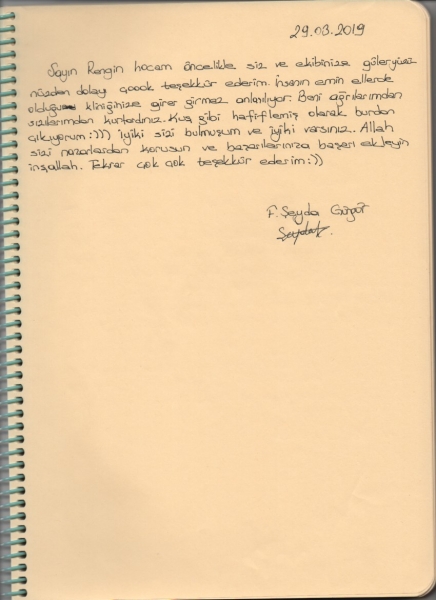 29.03.2019
Sayın Rengin hocam öncelikle siz ve ekibinize güleryüzü
nüzden dolayı çoook teşekkür ederim. İnsanın emin ellerde
olduğu kliniğinize girer girmez anlaşılıyor. Beni ağrılarımdan
sızılarımdan kurtardınız. Kuş gibi hafiflemiş olarak burdan
çıkıyorum :)))) iyiki sizi bulmuşum ve iyiki varsınız. Allah
sizi nazarlardan korusun ve başarılarınıza başarı ekleyin
inşallah. Tekrar çok çok teşekkür ederim :))
F. Şeyda Güngör